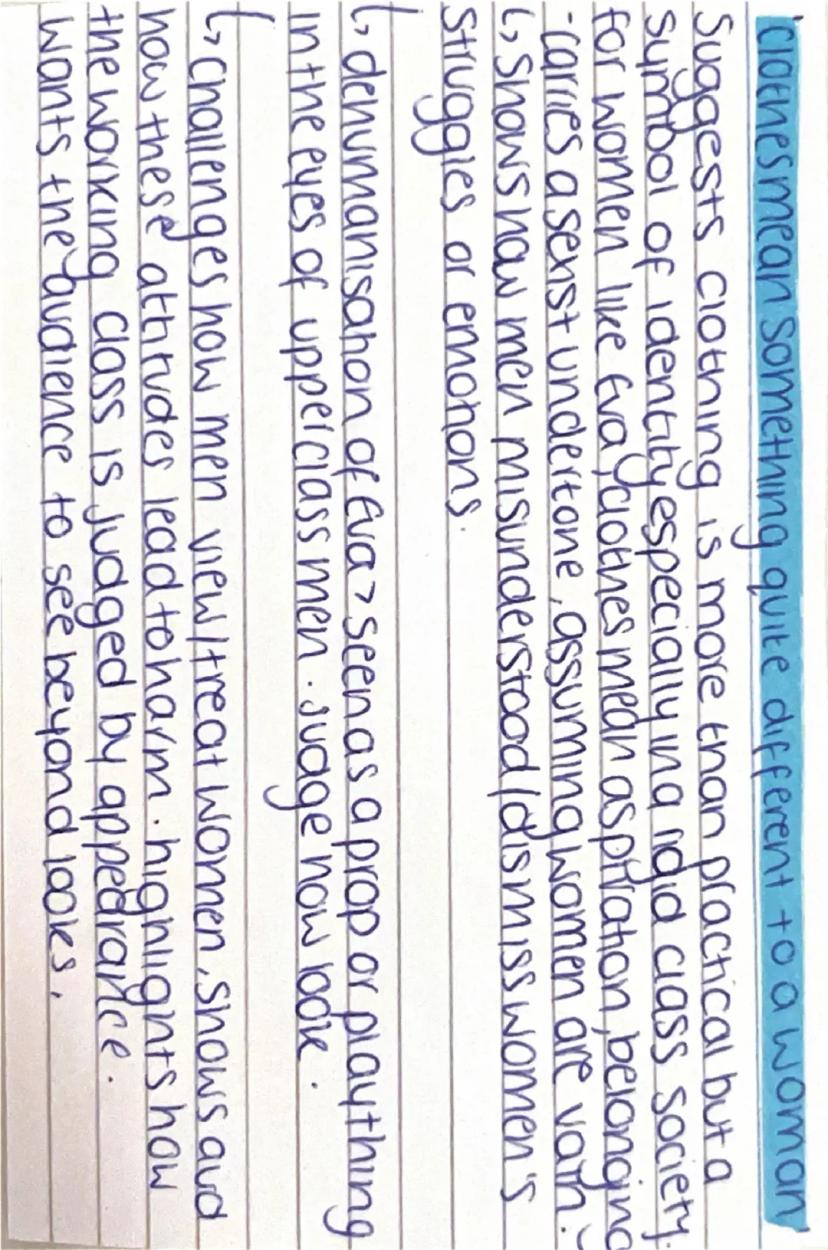 'clothes mean something quite different to a woman'
Suggests clothing is more than practical but a
symbol of identity especially in a rigid class society.
for women like Eva, clothes mean aspiration, belonging
- carries a sexist undertone, assuming women are vain.
↳ Shows how men misunderstood/dismiss women's
struggles or emotions.
↳ dehumanisation of Eva > seen as a prop or plaything
in the eyes of upperclass men. judge how look.
↳ Challenges how men view/treat women, shows aud
how these attitudes lead to harm. highlights how
the working class is judged by appearance.
wants the audience to see beyond looks.